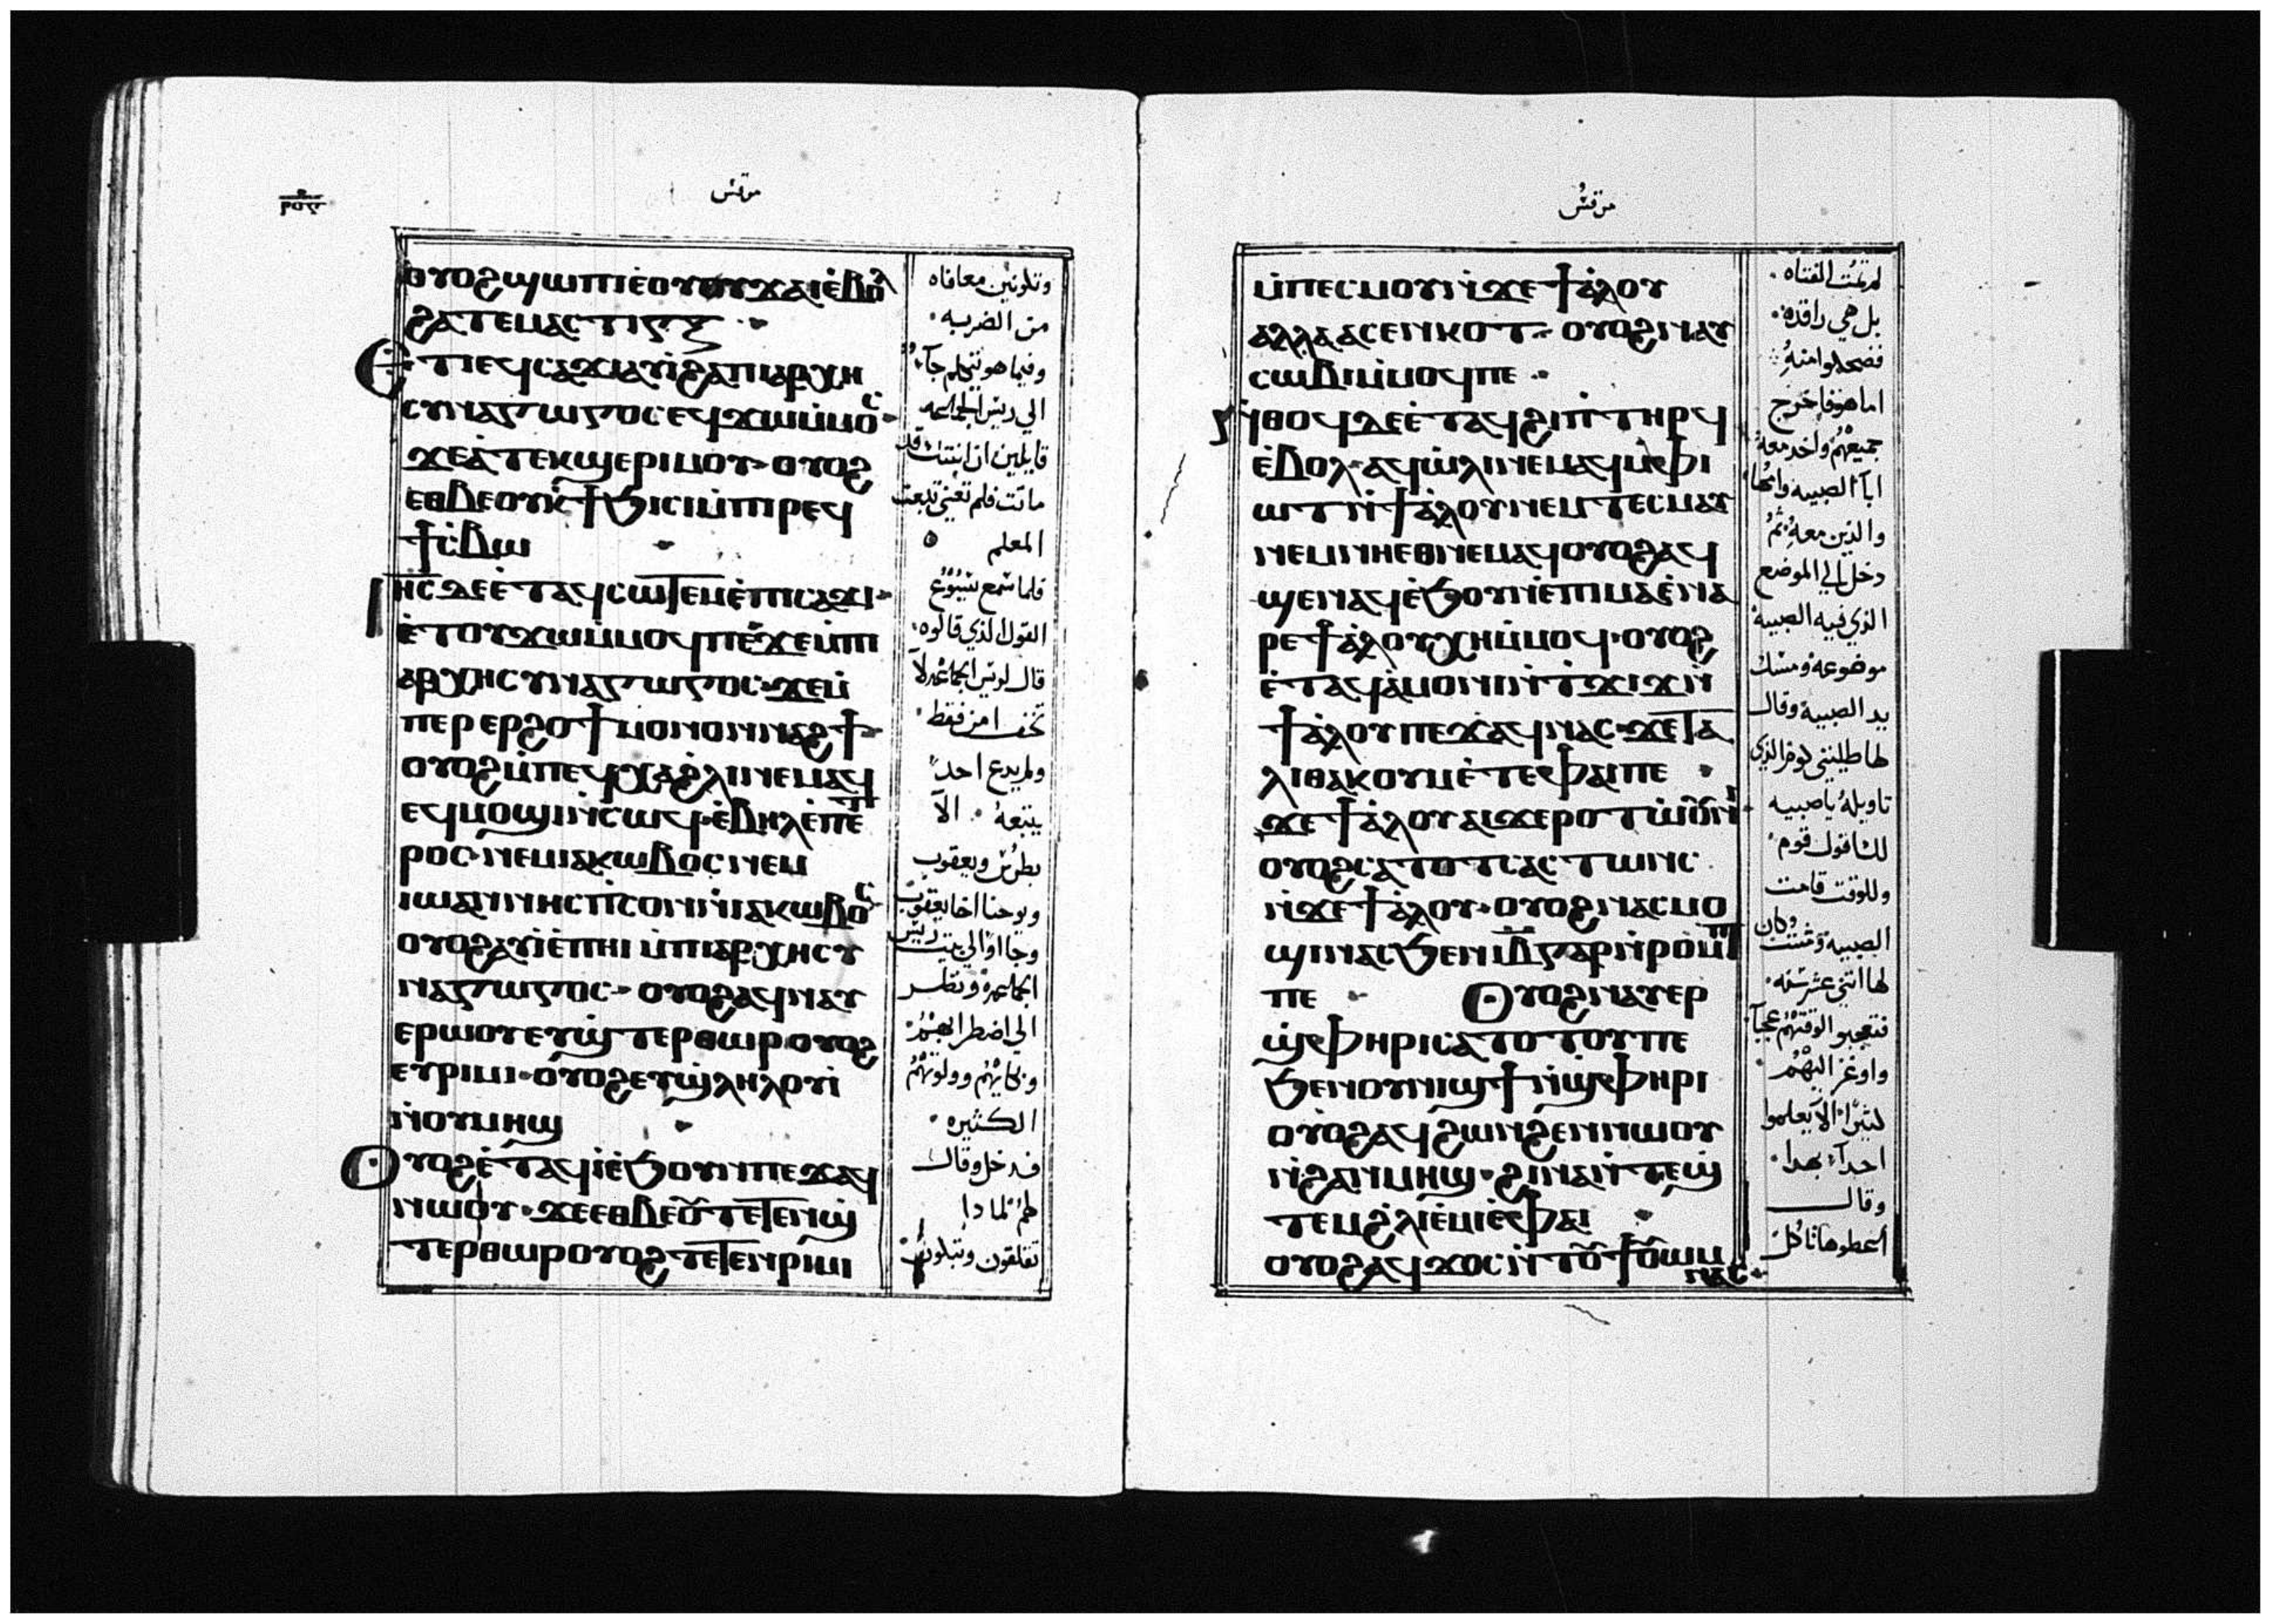 ⲣⲟⲋ
مرقس
ⲟⲩⲟϩϣⲱⲡⲓⲉ̀ⲟⲩⲟⲩϫⲁⲓⲉ̀ⲃⲟⲗ
ϩⲁⲧⲉⲙⲁⲥⲧⲓⲅⲝ
Ⲉⲧⲓⲉϥⲥⲁϫⲓⲁⲩⲓ̀ϩⲁⲡⲓⲁⲣⲭⲏ
ⲥⲩⲛⲁⲅⲱⲅⲟⲥⲉⲩϫⲱⲙ̀ⲙⲟⲥ
ϫⲉⲁ̀ⲧⲉⲕϣⲉⲣⲓⲙⲟⲩ· ⲟⲩⲟϩ
ⲉⲑⲃⲉⲟⲩⲕ̀ϯϧⲓⲥⲓⲙ̀ⲡⲓⲣⲉϥ
ϯⲥ̀ⲃⲱ
Ⲓⲏⲥⲇⲉⲉ̀ⲧⲁϥⲥⲱⲧⲉⲙⲉ̀ⲡⲓⲥⲁϫⲓ·
ⲉ̀ⲧⲟⲩϫⲱⲙ̀ⲙⲟϥⲡⲉϫⲉⲙ̀ⲡⲓ
ⲁⲣⲭⲏⲥⲩⲛⲁⲅⲱⲅⲟⲥ·ϫⲉⲙ̀
ⲡⲉⲣⲉⲣϩⲟϯⲙⲟⲛⲟⲛⲛⲁϩϯ·
ⲟⲩⲟϩⲙ̀ⲡⲉϥⲭⲁϩ̀ⲗⲓⲛⲉⲙⲁϥ
ⲉϥⲙⲟϣⲓⲛ̀ⲥⲱϥ·ⲉ̀ⲃⲏⲗⲉ̀ⲡⲉⲧ
ⲣⲟⲥ·ⲛⲉⲙⲓⲁⲕⲱⲃⲟⲥⲛⲉⲙ
ⲓⲱⲁⲛⲛⲏⲥⲡ̀ⲥⲟⲛⲛ̀ⲓⲁⲕⲱⲃⲟⲥ·
ⲟⲩⲟϩⲁⲩⲓ̀ⲉ̀ⲡⲏⲓ ⲙ̀ⲡⲓⲁⲣⲭⲏⲥⲩ
ⲛⲁⲅⲱⲅⲟⲥ· ⲟⲩⲟϩⲁϥⲛⲁⲩ
ⲉⲣⲱⲟⲩⲉⲩϣ̀ⲧⲉⲣⲑⲱⲣⲟⲩⲟϩ
ⲉⲩⲣⲓⲙⲓ·ⲟⲩⲟϩⲉⲩϣ̀ⲗⲏⲗⲟⲩⲓ̀
ⲛ̀ⲟⲩⲙⲏϣ
Ⲟⲩⲟϩⲉ̀ⲧⲁϥⲓ̀ⲉ̀ϧⲟⲩⲛⲡⲉϫⲁϥ
ⲛⲱⲟⲩ·ϫⲉⲉⲑⲃⲉⲟⲩⲧⲉⲧⲉⲛϣ̀
ⲧⲉⲣⲑⲱⲣⲟⲩⲟϩⲧⲉⲧⲉⲛⲣⲓⲙⲓ
وتكونين معافاه
من الضربه·
وفيما هو يتكلم جآءوا
الي ريس الجماعه
قايلين ان ابنتك قد
ماتت فلم تعني تتعب
المعلم
فلما سمع يسوع
القول الذي قالوه·
قال لريس الجماعه لا
تخف امن فقط·
ولم يدع احداً
يتبعه · الآ
بطرس ويعقوب
ويوحنا اخا يعقوب
وجااوا الي بيت ريس
الجماعه ونظر
الي اضطرابهم·
وبكايهم وولولتهم
الكثيره·
فدخل وقال
لهم لمادا
تقلقون وتبكون
مرقس
ⲙ̀ⲡⲉⲥⲙⲟⲩⲛ̀ϫⲉϯⲁ̀ⲗⲟⲩ
ⲁⲗⲗⲁⲁⲥⲉⲛⲕⲟⲧ· ⲟⲩⲟϩⲛⲁⲩ
ⲥⲱⲃⲓⲙ̀ⲙⲟϥⲡⲉ·
ⲛ̀ⲑⲟϥⲇⲉⲉ̀ⲧⲁϥϩⲓⲡ̀ⲧⲏⲣϥ
ⲉ̀ⲃⲟⲗ·ⲁϥⲱ̀ⲗⲓⲛⲉⲙⲁϥⲙ̀ⲫⲓ
ⲱⲧⲛ̀ϯⲁ̀ⲗⲟⲩⲛⲉⲙ ⲧⲉⲥⲙⲁⲩ
ⲛⲉⲙⲛⲏⲉⲑⲛⲉⲙⲁϥⲟⲩⲟϩⲁϥ
ϣⲉⲛⲁϥⲉ̀ϧⲟⲩⲛⲉ̀ⲡⲓⲙⲁⲉ̀ⲛⲁ
ⲣⲉϯⲁ̀ⲗⲟⲩⲭⲏⲙ̀ⲙⲟϥ·ⲟⲩⲟϩ
ⲉ̀ⲧⲁϥⲁ̀ⲙⲟⲛⲓⲛ̀ⲧ̀ϫⲓϫⲛ̀
ϯⲁ̀ⲗⲟⲩⲡⲉϫⲁϥⲛⲁⲥ·ϫⲉⲧⲁ
ⲗⲓⲑⲁⲕⲟⲩⲙⲉ̀ⲧⲉⲫⲁⲓⲡⲉ
ϫⲉϯⲁ̀ⲗⲟⲩⲁⲓϫⲉⲣⲟⲧⲱⲟⲩⲛⲓ·
ⲟⲩⲟϩⲥⲁⲧⲟⲧⲥⲁⲥⲧⲱⲛⲥ
ⲛ̀ϫⲉϯⲁ̀ⲗⲟⲩ·ⲟⲩⲟϩⲛⲁⲥⲙⲟ
ϣⲓⲛⲁⲥϧⲉⲛⲓⲃ̅ⲅⲁⲣⲛ̀ⲣⲟⲙⲡⲓ
ⲡⲉ Ⲟⲩⲟϩⲛⲁⲩⲉⲣ
ϣ̀ⲫⲏⲣⲓⲥⲁⲧⲟⲧⲟⲩⲡⲉ
ϧⲉⲛⲟⲩⲛⲓϣϯⲛ̀ϣ̀ⲫⲏⲣⲓ
ⲟⲩⲟϩⲁϥϩⲱⲛϩⲉⲛⲛⲱⲟⲩ
ⲛ̀ϩⲁⲛⲙⲏϣ·ϩⲓⲛⲁⲛ̀ⲧⲉϣ̀
ⲧⲉⲙϩ̀ⲗⲓⲉ̀ⲙⲓⲉ̀ⲫⲁⲓ
ⲟⲩⲟϩⲁϥϫⲟⲥⲛ̀ⲧⲟⲩϯⲟⲩⲱⲙ
ⲛⲁⲥ·
لم تمت الفتاه·
بل هي راقده·
فضحكوا منه
اما هو فاخرج
جميعهم واخد معه
ابآ الصبيه وامها
والذين معه ثم
دخل الي الموضع
الذي فيه الصبيه
موضوعه ومسك
يد الصبية وقال
لها طليثي قومي الذي
تاويله يا صبيه
لك اقول قومي
وللوقت قامت
الصبيه ومشت وكان
لها اثني عشر سنه·
فتعجبوا لوقتهم عجبآ
واوعز اليهم·
كثيراً الآ يعلموا
احدآً بهدا·
وقال
أعطوها تاكل